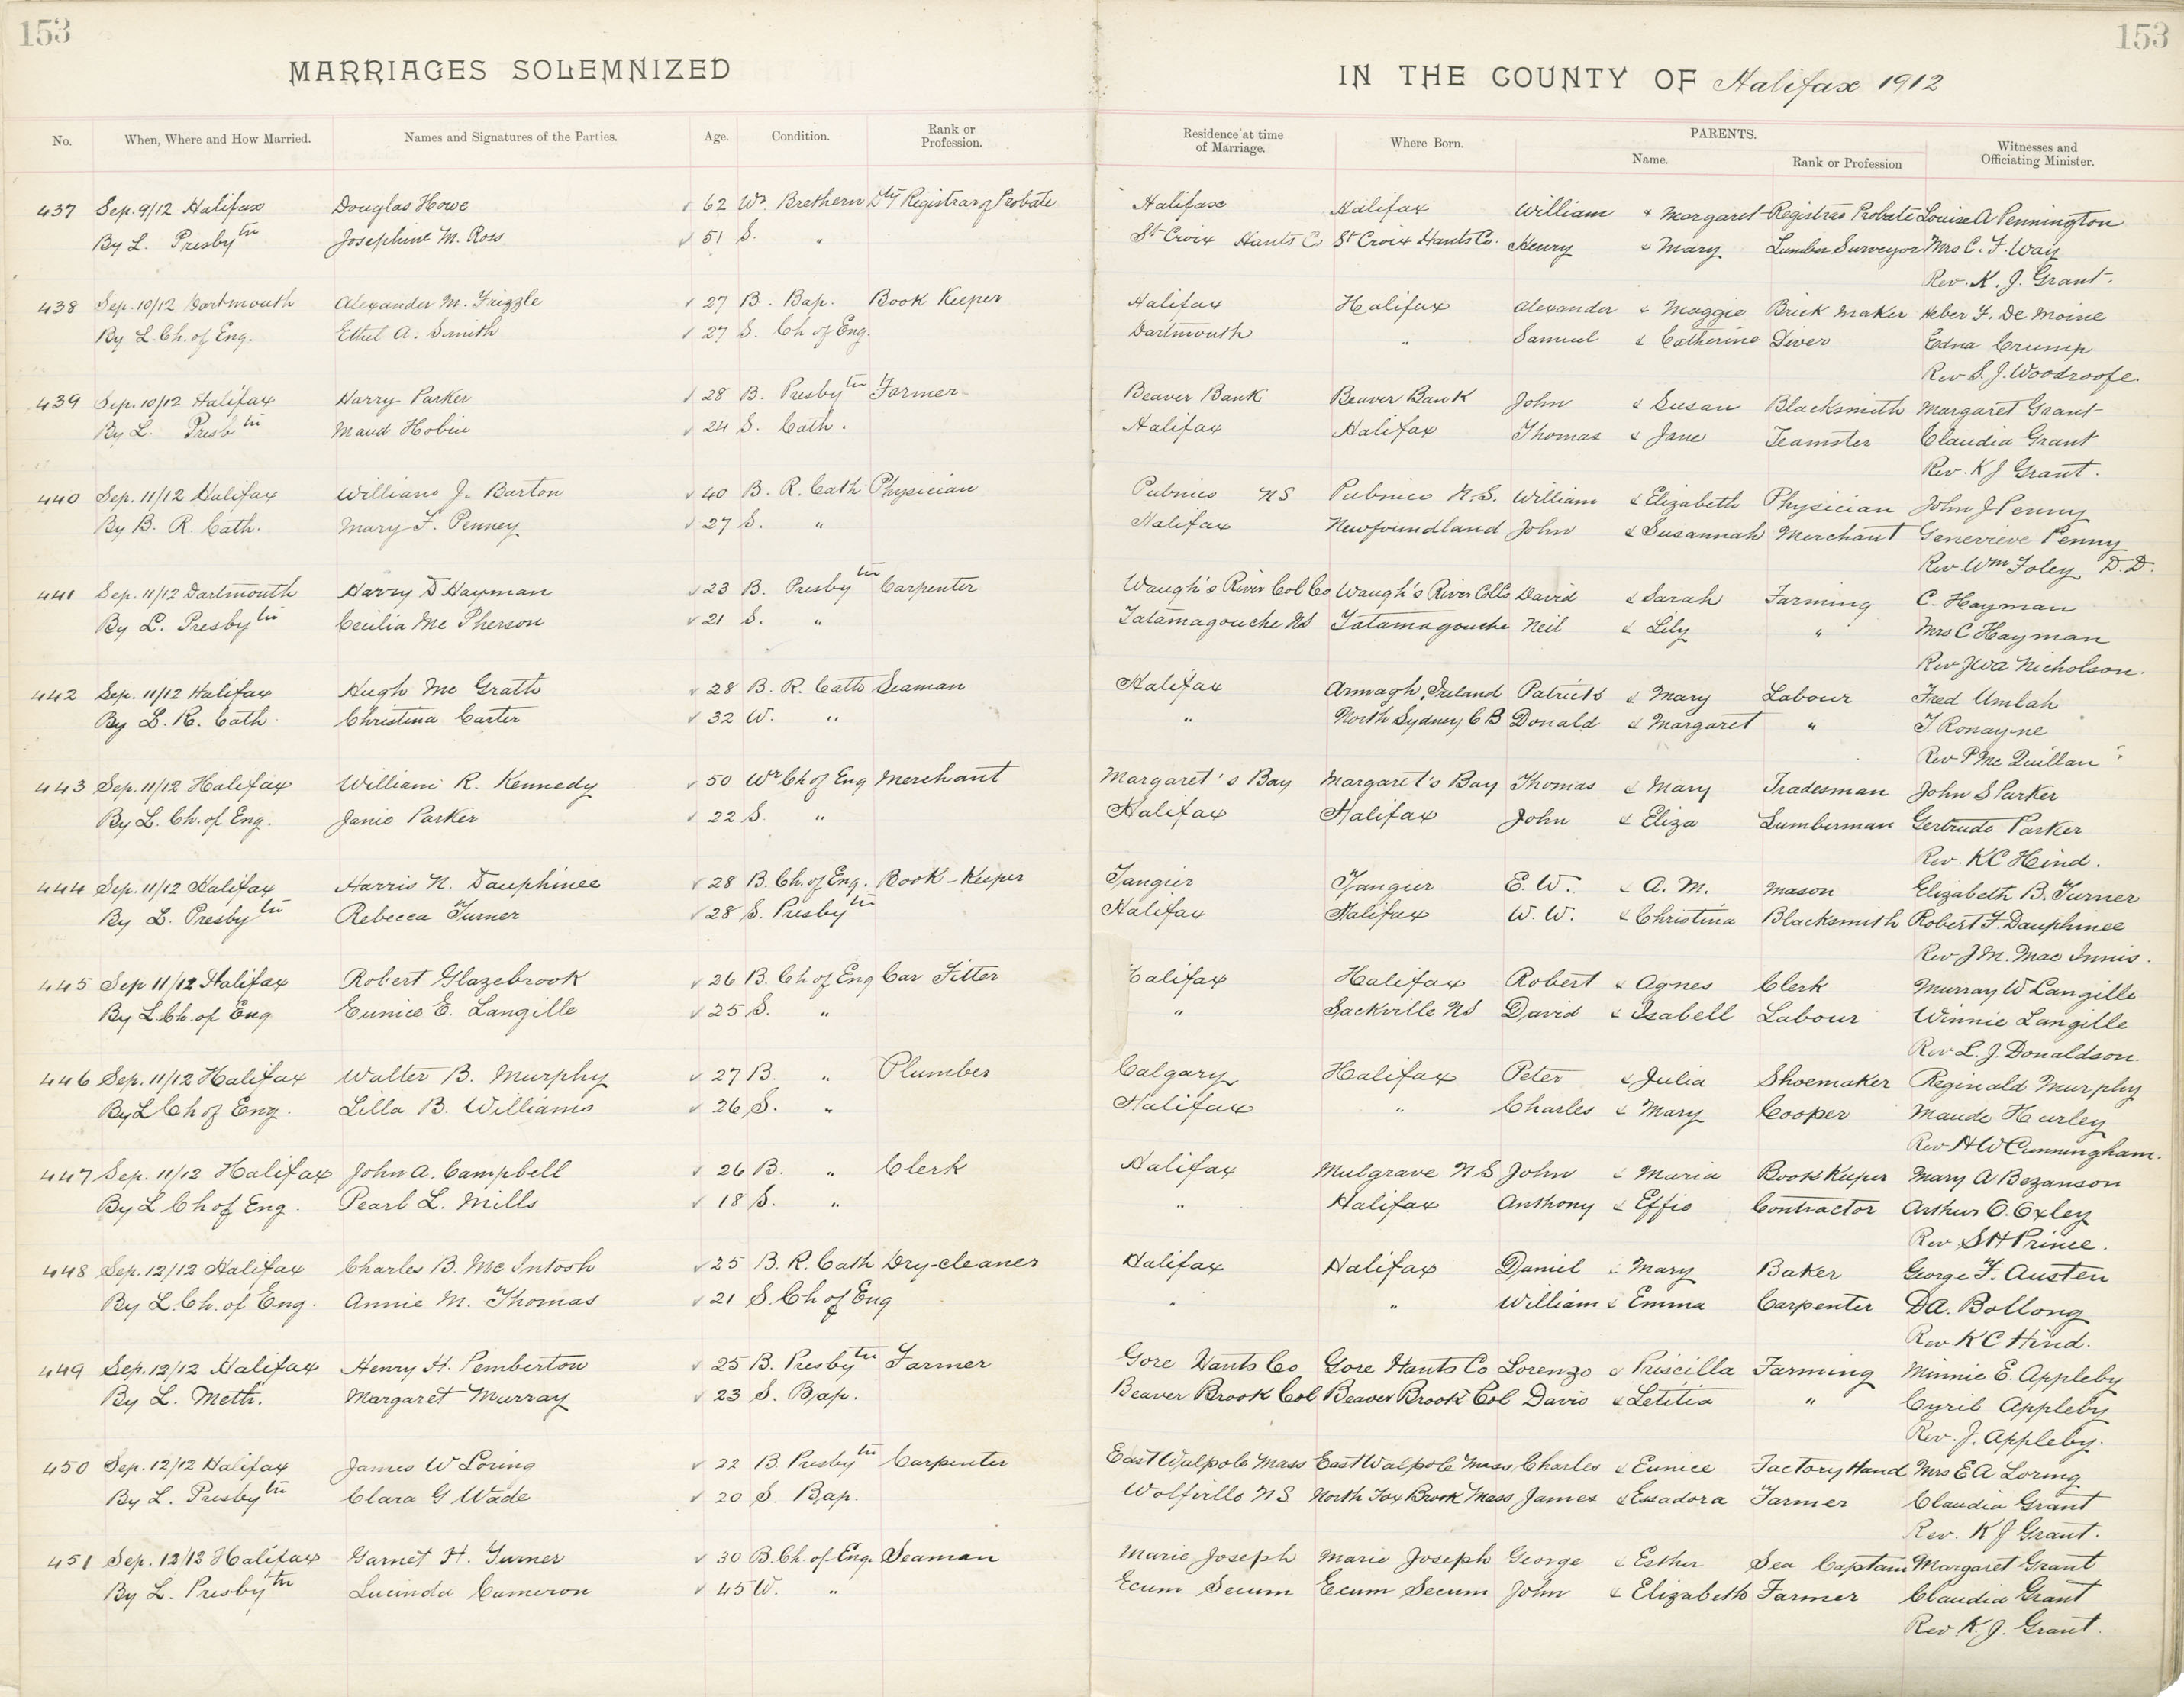 153 153
MARRIAGES SOLEMNIZED IN THE COUNTY OF Halifax 1912
No. When, Where and How Married. Names and Signatures of the Parties. Age. Condition. Rank or Profession. Residence at time of Marriage. Where Born. PARENTS. Name. Rank or Profession Witnesses and Officiating Minister.
437 Sep. 9/12 Halifax Douglas Howe 62 Wr. Brethern Dty Registrar of Probate Halifax Halifax William & Margaret Registrar Probate Louise A Pennington
By L. Presbytn Josephine M. Ross 51 S. " St Croix Hants C St Croix Hants Co. Henry & Mary Lumber Surveyor Mrs C. F. Way
Rev. K. J. Grant.
438 Sep. 10/12 Dartmouth Alexander M. Frizzle 27 B. Bap. Book Keeper Halifax Halifax Alexander & Maggie Brick Maker Heber F. De Moine
By L. Ch. of Eng. Ethel A. Smith 27 S. Ch of Eng. Dartmouth " Samuel & Catherine Diver Edna Crump
Rev S. J. Woodroofe.
439 Sep. 10/12 Halifax Harry Parker 28 B. Presbytn Farmer Beaver Bank Beaver Bank John & Susan Blacksmith Margaret Grant
By L. Presbtn Maud Hobin 24 S. Cath. Halifax Halifax Thomas & Jane Teamster Claudia Grant
Rev. K J Grant.
440 Sep. 11/12 Halifax William J. Barton 40 B. R. Cath Physician Pubnico NS Pubnico N.S. William & Elizabeth Physician John J Penny
By B. R. Cath. Mary F. Penney 27 S. " Halifax Newfoundland John & Susannah Merchant Genevieve Penny
Rev Wm Foley D.D.
441 Sep. 11/12 Dartmouth Harry D Hayman 23 B. Presbytn Carpenter Waugh's River Col Co Waugh's River Col Co David & Sarah Farming C. Hayman
By L. Presbytn Cecilia Mc Pherson 21 S. " Tatamagouche NS Tatamagouche Neil & Lily " Mrs C Hayman
Rev J W A Nicholson.
442 Sep. 11/12 Halifax Hugh Mc Grath 28 B. R. Cath Seaman Halifax Armagh, Ireland Patrick & Mary Labour Fred Umlah
By L. R. Cath Christina Carter 32 W. " " North Sydney C B Donald & Margaret " T. Ronayne
Rev P Mc Quillan
443 Sep. 11/12 Halifax William R. Kennedy 50 Wr Ch of Eng Merchant Margaret's Bay Margaret's Bay Thomas & Mary Tradesman John S Parker
By L. Ch. of Eng. Janie Parker 22 S. " Halifax Halifax John & Eliza Lumberman Gertrude Parker
Rev. K C Hind.
444 Sep. 11/12 Halifax Harris N. Dauphinee 28 B. Ch. of Eng. Book-Keeper Tangier Tangier E. W. & A. M. Mason Elizabeth B. Turner
By L. Presbytn Rebecca Turner 28 S. Presbytn Halifax Halifax W. W. & Christina Blacksmith Robert F. Dauphinee
Rev J M. Mac Innis.
445 Sep 11/12 Halifax Robert Glazebrook 26 B. Ch of Eng Car Fitter Halifax Halifax Robert & Agnes Clerk Murray W Langille
By L. Ch. of Eng Eunice E. Langille 25 S. " " Sackville NS David & Isabell Labour Winnie Langille
Rev L. J. Donaldson.
446 Sep. 11/12 Halifax Walter B. Murphy 27 B. " Plumber Calgary Halifax Peter & Julia Shoemaker Reginald Murphy
By L Ch of Eng. Lilla B. Williams 26 S. " Halifax " Charles & Mary Cooper Maude Hurley
Rev H W Cunningham.
447 Sep. 11/12 Halifax John A. Campbell 26 B. " Clerk Halifax Mulgrave N S John & Maria Book Keeper Mary A Bezanson
By L Ch of Eng. Pearl L. Mills 18 S. " " Halifax Anthony & Effie Contractor Arthur O. Oxley
Rev S H Prince.
448 Sep. 12/12 Halifax Charles B. Mc Intosh 25 B. R. Cath Dry-cleaner Halifax Halifax Daniel & Mary Baker George F. Austen
By L. Ch. of Eng. Annie M. Thomas 21 S. Ch of Eng " " William & Emma Carpenter D A. Bollong
Rev. K C Hind.
449 Sep. 12/12 Halifax Henry H. Pemberton 25 B. Presbytn Farmer Gore Hants Co Gore Hants Co Lorenzo & Priscilla Farming Minnie E. Appleby
By L. Meth. Margaret Murray 23 S. Bap. Beaver Brook Col Beaver Brook Col Davis & Letitia " Cyril Appleby
Rev. J. Appleby.
450 Sep. 12/12 Halifax James W Loring 22 B. Presbytn Carpenter East Walpole Mass East Walpole Mass Charles & Eunice Factory Hand Mrs E A Loring
By L. Presbytn Clara G Wade 20 S. Bap. Wolfville N S North Fox Brook Mass James & Essadora Farmer Claudia Grant
Rev. K J Grant.
451 Sep. 12/12 Halifax Garnet H. Turner 30 B. Ch. of Eng. Seaman Marie Joseph Marie Joseph George & Esther Sea Captain Margaret Grant
By L. Presbytn Lucinda Cameron 45 W. " Ecum Secum Ecum Secum John & Elizabeth Farmer Claudia Grant
Rev. K. J. Grant.